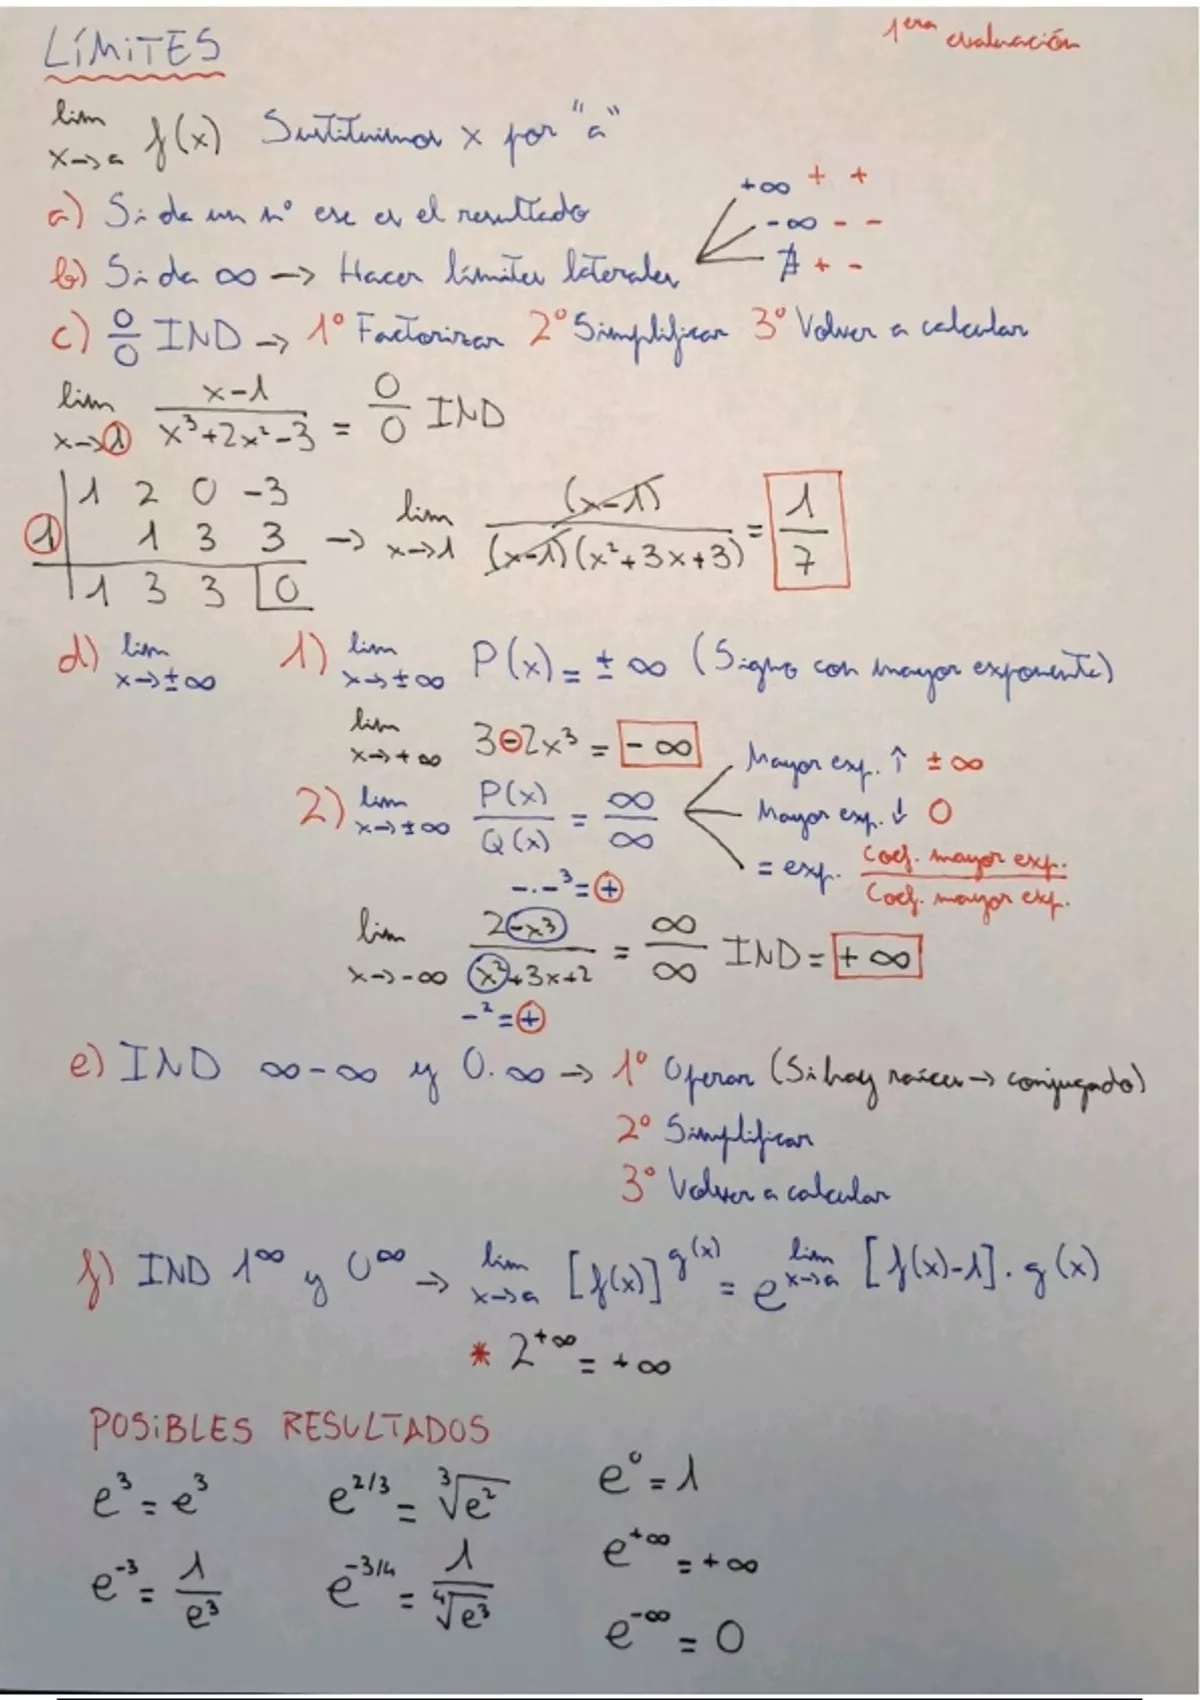 LÍMITES
1era evaluación
lim x→a f(x) Sustituimos x por "a"
a) Si da un nº ese es el resultado
b) Si da ∞ → Hacer límites laterales
+∞ + +
-∞ - -
∄ + -
c) 0/0 IND → 1º Factorizar 2º Simplificar 3º Volver a calcular
lim x→1 (x-1)/(x³+2x²-3) = 0/0 IND
1 2 0 -3
1 | 1 3 3 → lim x→1 (x-1)/((x-1)(x²+3x+3)) = 1/7
1 3 3 0
d) lim x→±∞ 1) lim x→±∞ P(x) = ±∞ (Signo con mayor exponente)
lim x→+∞ 3-2x³ = -∞
2) lim x→±∞ P(x)/Q(x) = ∞/∞
Mayor exp. ↑ ±∞
Mayor exp. ↓ 0
= exp. Coef. mayor exp. / Coef. mayor exp.
-·-³ = +
lim x→-∞ (2-x³)/(x²+3x+2) = ∞/∞ IND = +∞
-² = +
e) IND ∞-∞ y 0.∞ → 1º Operar (Si hay raíces → conjugado)
2º Simplificar
3º Volver a calcular
f) IND 1^∞ y 0^∞ → lim x→a [f(x)]^g(x) = e^lim x→a [f(x)-1]·g(x)
* 2^+∞ = +∞
POSiBLES RESULTADOS
e³ = e³ e^2/3 = ³√e² e⁰ = 1
e^-3 = 1/e³ e^-3/4 = 1/⁴√e³ e^+∞ = +∞
e^-∞ = 0